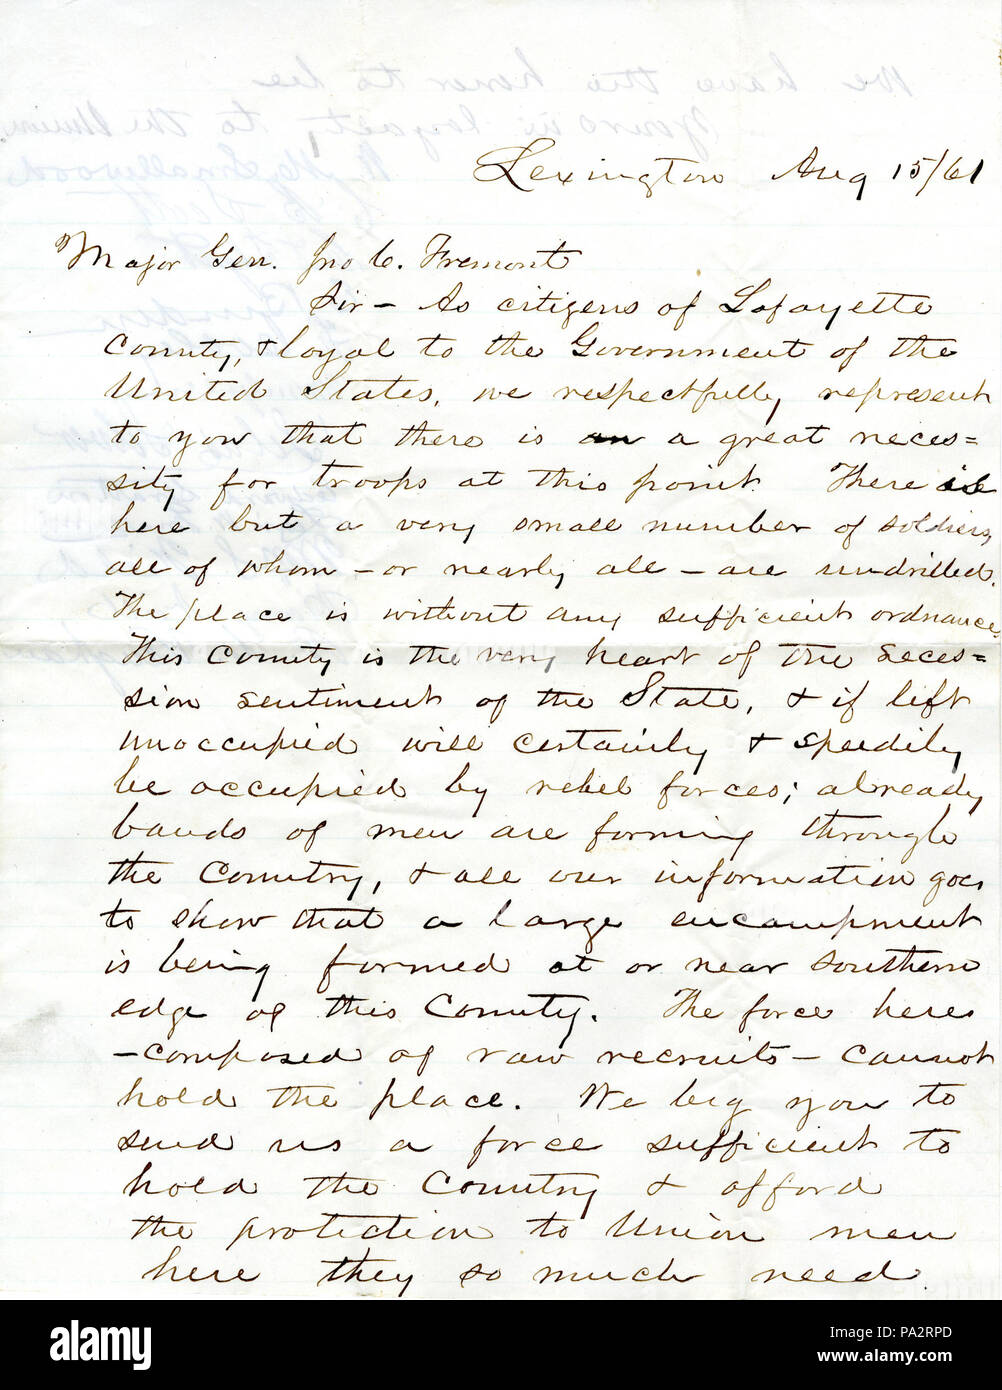 We have the honor to be
Yours in loyalty to the Union
Smallwood
Lexington Aug 15/61
Major Gen. Jno C. Fremont
Sir - As citizens of Lafayette
County, & loyal to the Government of the
United States, we respectfully represent
to you that there is a great neces=
sity for troops at this point. There is
here but a very small number of soldiers,
all of whom - or nearly all - are undrilled.
The place is without any sufficient ordnance.
This County is the very heart of the seces=
sion sentiment of the State, & if left
unoccupied will certainly & speedily
be occupied by rebel forces; already
bands of men are forming through
the Country, & all our information goes
to show that a large encampment
is being formed at or near southern
edge of this County. The force here
-composed of raw recruits- cannot
hold the place. We beg you to
send us a force sufficient to
hold the Country & afford
the protection to Union men
here they so much need.
alamy
Image ID: PA2RPD
www.alamy.com